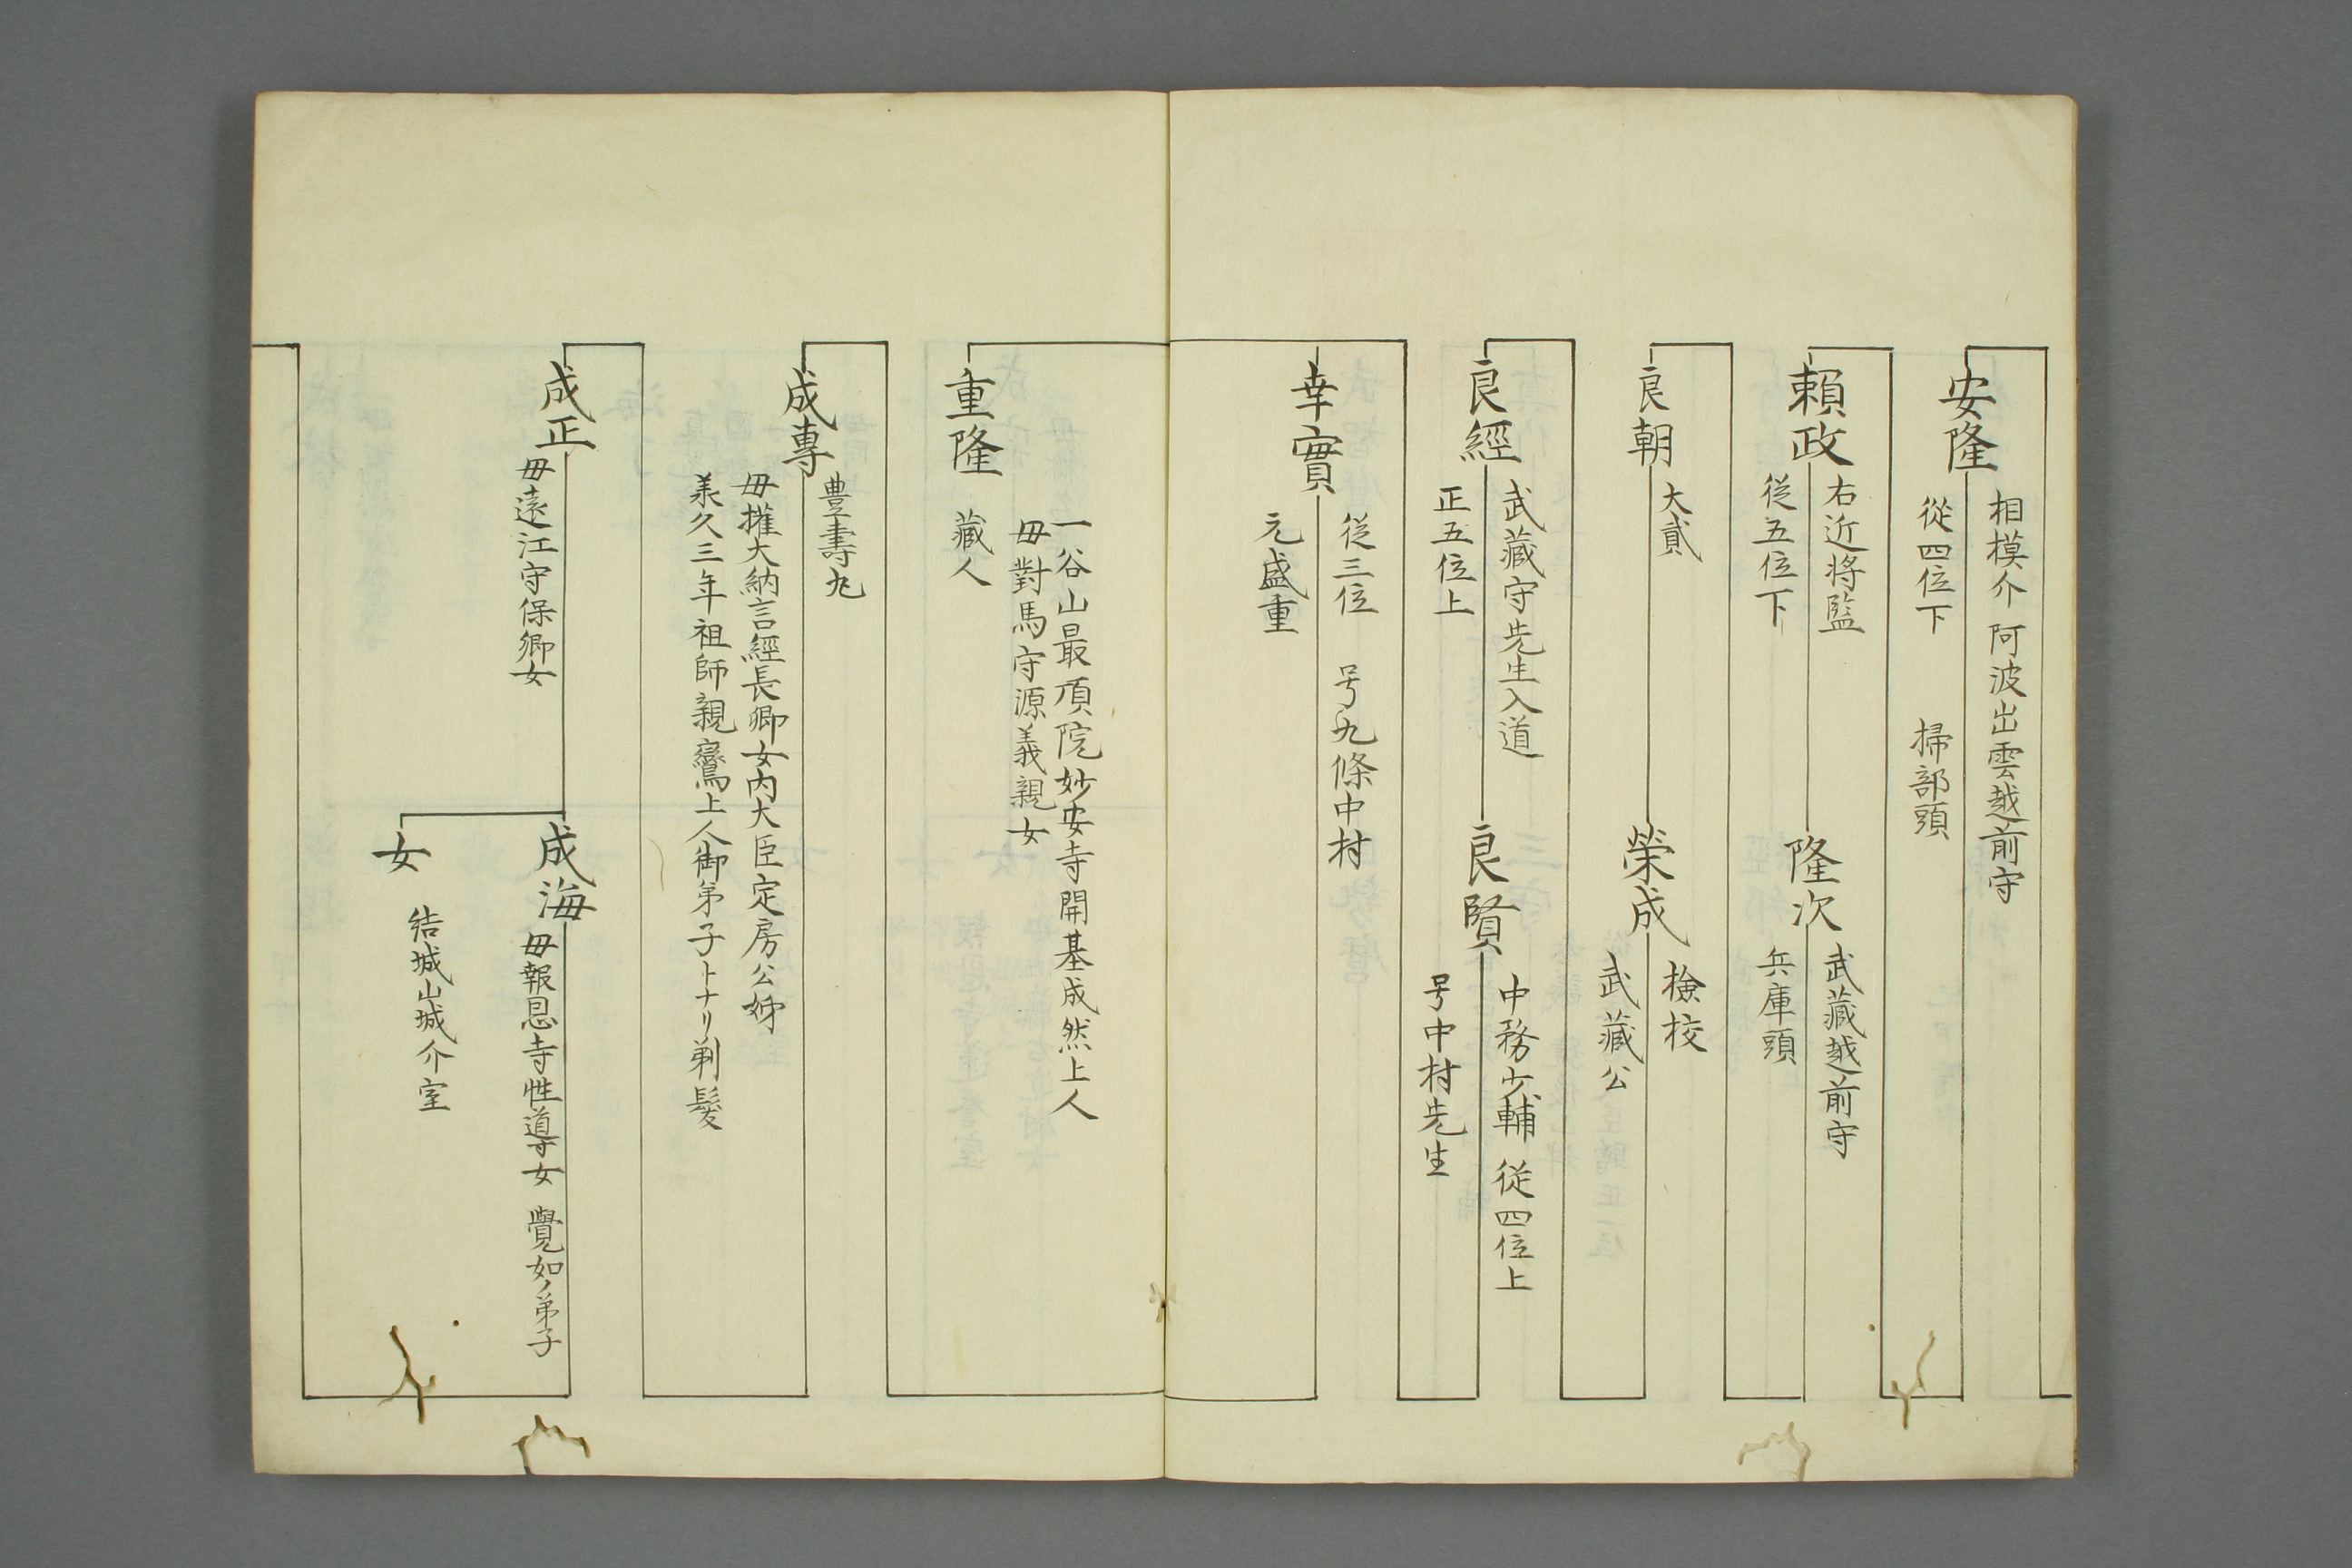 安隆
相模介 阿波出雲越前守
從四位下 掃部頭
頼政
右近将監
従五位下
隆次
武藏越前守
兵庫頭
良朝
大貳
榮成
檢校
武藏公
良經
武藏守先生入道
正五位上
良賢
中務少輔 従四位上
号中村先生
幸實
従三位 号九條中村
元盛重
一谷山最頂院妙安寺開基成然上人
母對馬守源義親女
重隆
藏人
成專
豊壽丸
母權大納言經長卿女内大臣定房公姊
承久三年祖師親鸞上人御弟子トナリ剃髪
成正
母遠江守保卿女
成海
母報恩寺性導女 覺如ノ弟子
女
結城山城介室